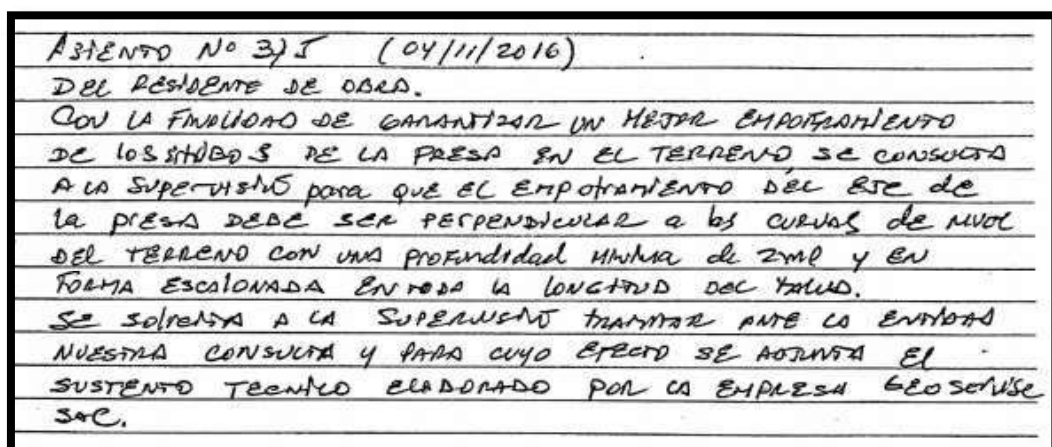 ASIENTO Nº 315 (04/11/2016)
DEL RESIDENTE DE OBRA.
CON LA FINALIDAD DE GARANTIZAR UN MEJOR EMPOTRAMIENTO
DE LOS ESTRIBOS DE LA PRESA EN EL TERRENO SE CONSULTA
A LA SUPERVISIÓN para QUE EL EMPOTRAMIENTO DEL EJE de
la PRESA DEBE SER PERPENDICULAR a las CURVAS de NIVEL
DEL TERRENO CON UNA profundidad MINIMA de 2ml y EN
FORMA ESCALONADA EN TODA LA LONGITUD DEL TALUD.
SE SOLICITA A LA SUPERVISIÓN TRAMITAR ANTE LA ENTIDAD
NUESTRA CONSULTA y PARA CUYO EFECTO SE ADJUNTA El
SUSTENTO TECNICO ELABORADO POR LA EMPRESA GEOSERVISE
SAC.